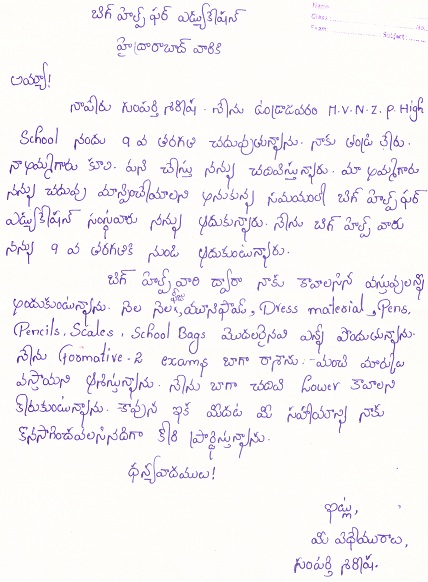 Name
Class
No.
Exam
Subject
బిగ్ హెల్ప్ ఫర్ ఎడ్యుకేషన్
హైదరాబాద్ వారికి
అయ్యా!
నాపేరు గుంపర్తి శిరీష. నేను ఉండ్రాజవరం M.V.N.Z.P.High
School నందు 9 వ తరగతి చదువుతున్నాను. నాకు తండ్రి లేరు.
నా అమ్మగారు కూలి పని చేస్తు నన్ను చదివిస్తున్నారు. మా అమ్మగారు
నన్ను చదువు మాన్పించేయాలని అనుకున్న సమయంలో బిగ్ హెల్ప్ ఫర్
ఎడ్యుకేషన్ సంస్థవారు నన్ను ఆదుకున్నారు. నేను బిగ్ హెల్ప్ వారు
నన్ను 9 వ తరగతికి నుండి ఆదుకుంటున్నారు.
బిగ్ హెల్ప్ వారి ద్వారా నాకు కావాలసిన వస్తువులన్నీ
అందుకుంటున్నాను. నెల నెల ఫీజు, యూనిఫామ్, Dress material, Pens,
Pencils, Scales, School Bags మొదలైనవి ఎన్నో పొందుతున్నాను.
నేను Formative-2 exams బాగా రాశాను. మంచి మార్కులు
వస్తాయని ఆశిస్తున్నాను. నేను బాగా చదివి కావాలని
కోరుకుంటున్నాను. కావున ఇక మీదట మీ సహాయాన్ని నాకు
కొనసాగించవలసినదిగా కోరి ప్రార్థిస్తున్నాను.
ధన్యవాదములు!
ఇట్లు,
మీ విధేయురాలు,
గుంపర్తి శిరీష.